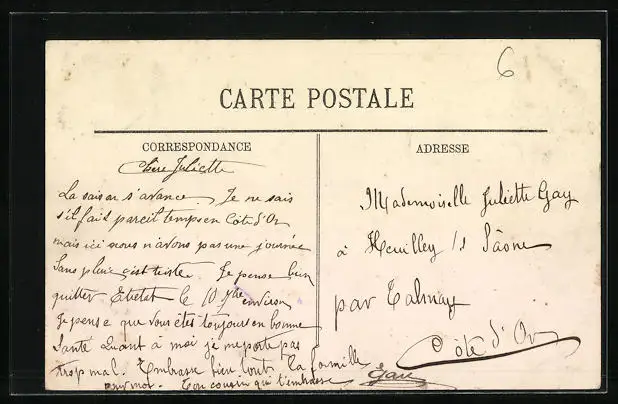 6
CARTE POSTALE
CORRESPONDANCE
Chère Juliette
La saison s'avance, Je ne sais
s'il fait pareil temps en Côte d'Or
mais ici nous n'avons pas une journée
sans pluie c'est triste. Je pense bien
quitter Etretat le 10 7bre environ
Je pense que vous êtes toujours en bonne
santé Quant à moi je me porte pas
trop mal. Embrasse bien tout la famille
pour moi. Ton cousin qui t'embrasse
ADRESSE
Mademoiselle Juliette Gay
à Heuilley s/ Saône
par Talmay
Côte d'Or